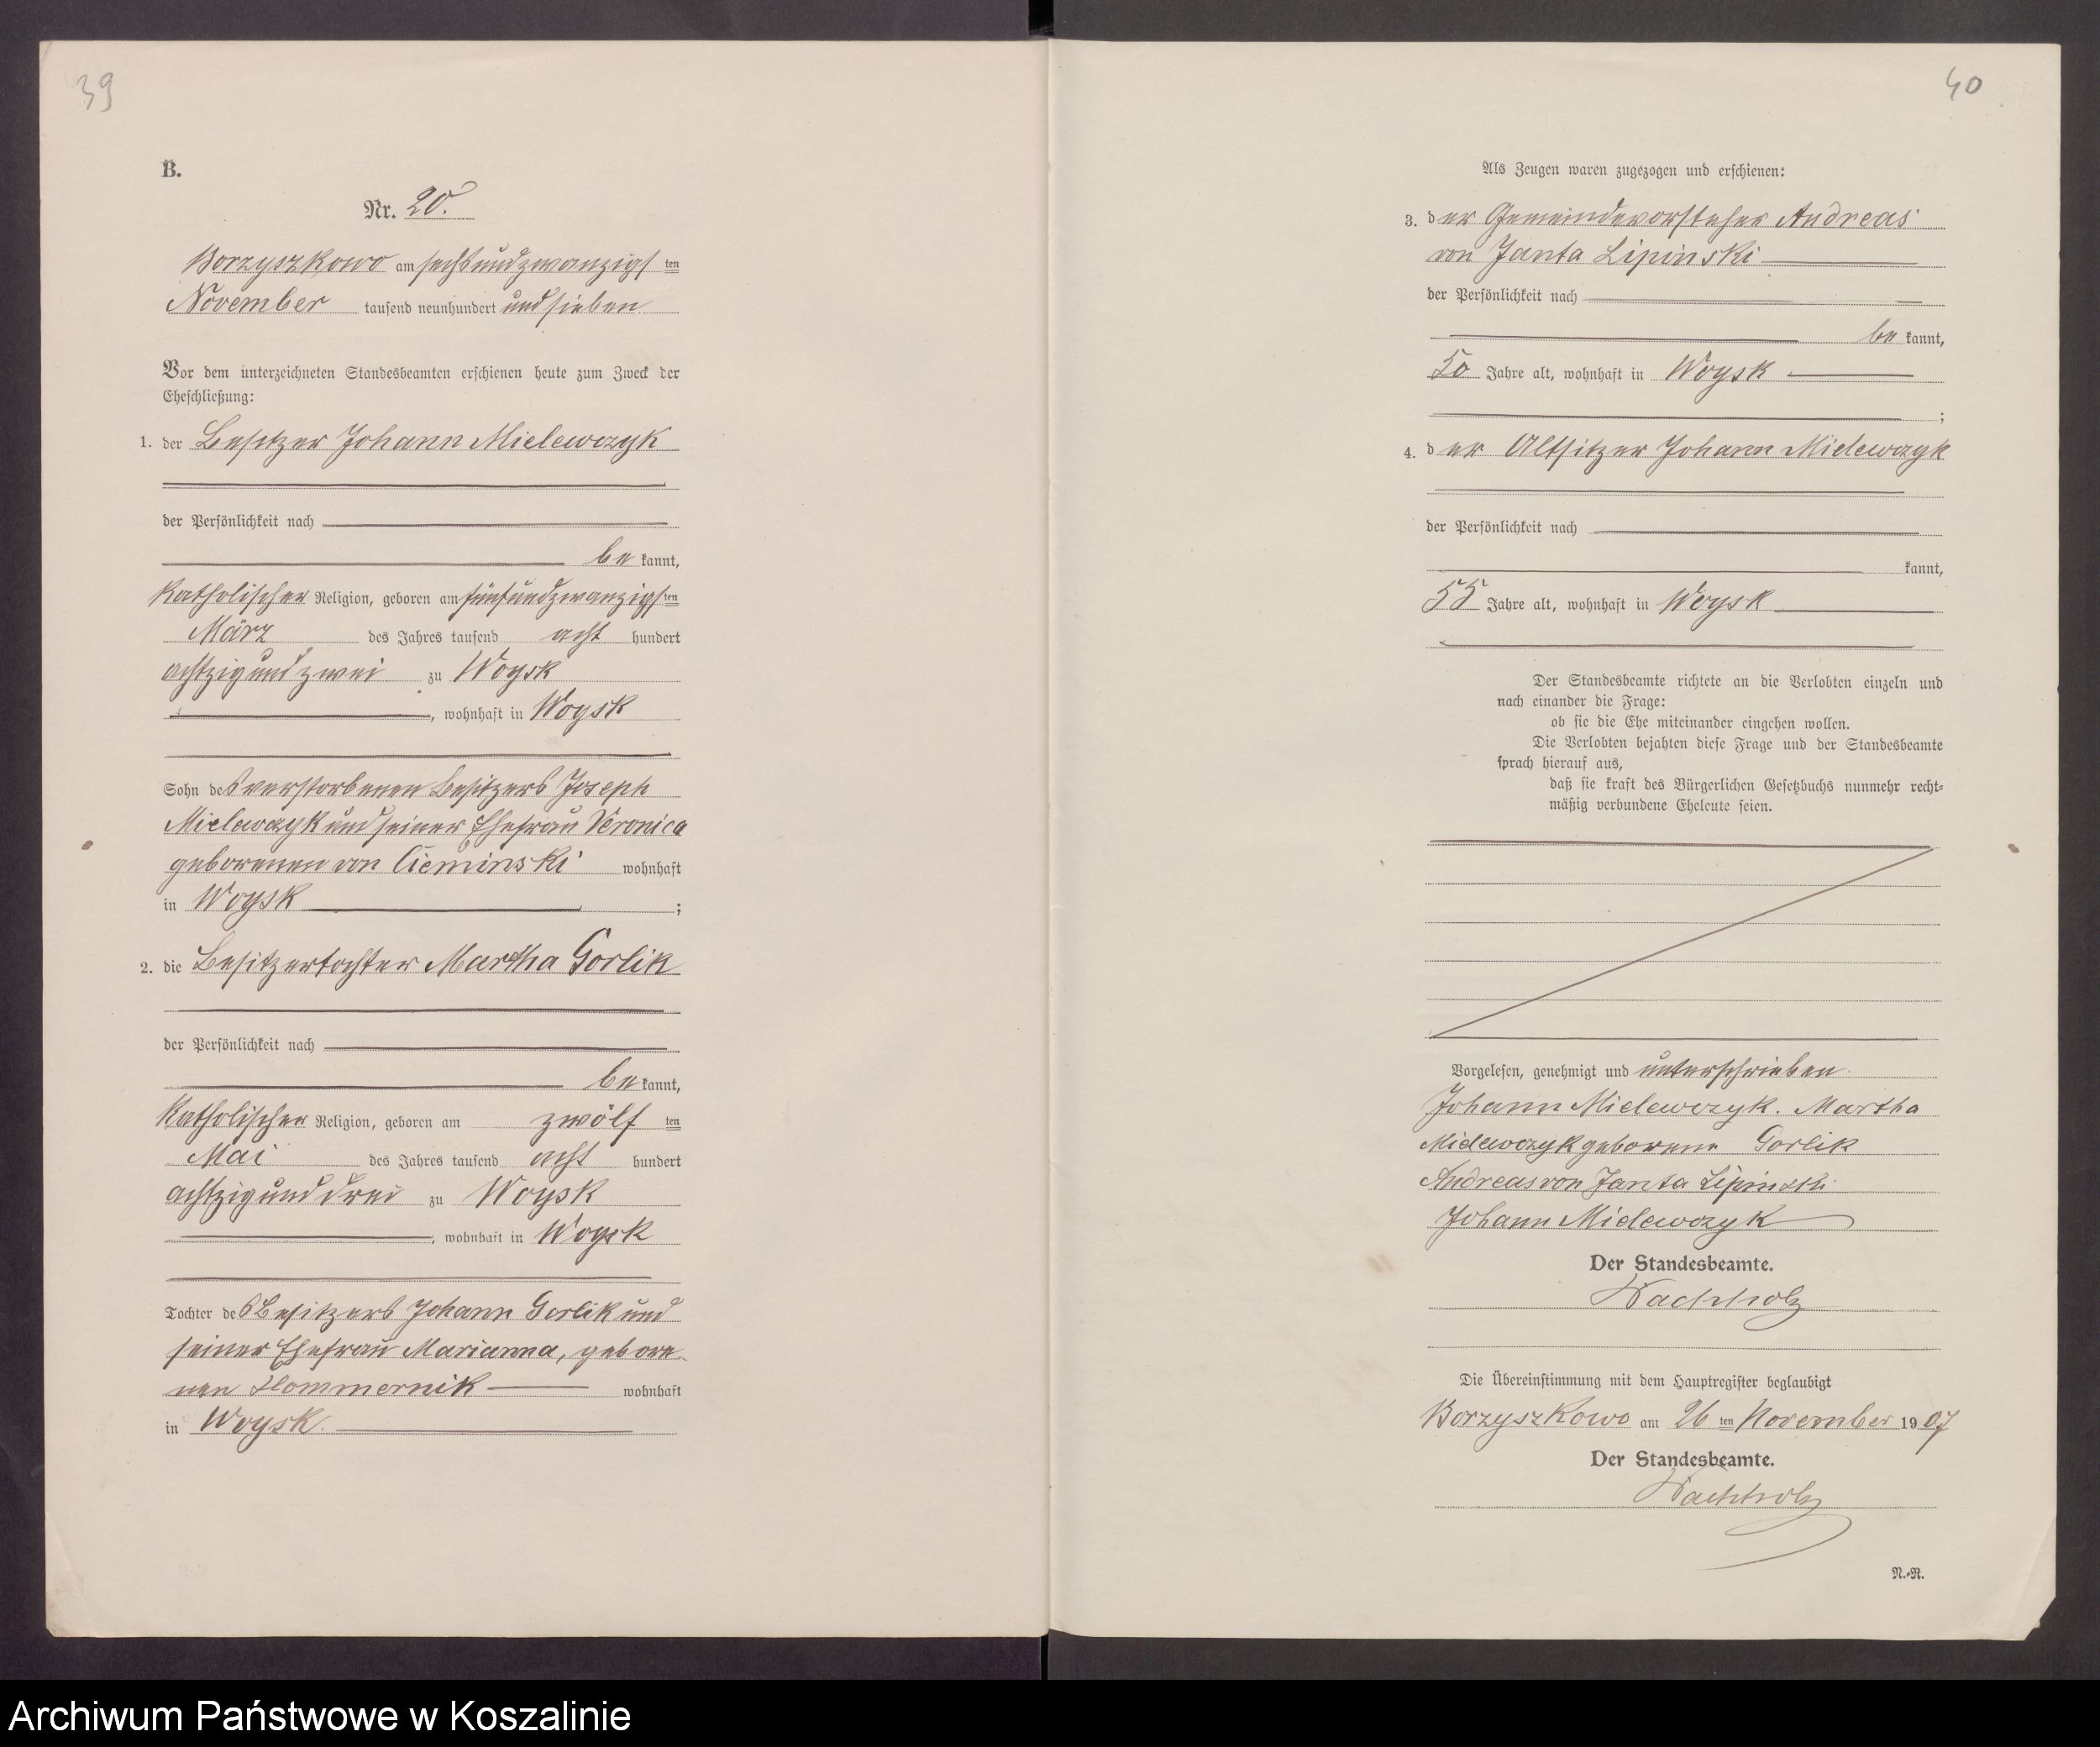 39
B.
Nr. 20.
Borzyszkowo am sechsundzwanzigsten
November tausend neunhundert und sieben
Vor dem unterzeichneten Standesbeamten erschienen heute zum Zweck der
Eheschließung:
1. der Besitzer Johann Mielewczyk
der Persönlichkeit nach
bekannt,
katholischer Religion, geboren am fünfundzwanzigsten
März des Jahres tausend acht hundert
achtzig und zwei zu Woysk
, wohnhaft in Woysk
Sohn des verstorbenen Besitzers Joseph
Mielewczyk und seiner Ehefrau Veronica
geborenen von Cieminski wohnhaft
in Woysk ;
2. die Besitzertochter Martha Gorlik
der Persönlichkeit nach
bekannt,
katholischer Religion, geboren am zwölften
Mai des Jahres tausend acht hundert
achtzig und drei zu Woysk
, wohnhaft in Woysk
Tochter des Besitzers Johann Gorlik und
seiner Ehefrau Marianna, gebore-
nen wohnhaft
in Woysk.
40
Als Zeugen waren zugezogen und erschienen:
3. der Gemeindevorsteher Andreas
von Janta Lipinski
der Persönlichkeit nach
bekannt,
50 Jahre alt, wohnhaft in Woysk
;
4. der Altsitzer Johann Mielewczyk
der Persönlichkeit nach
kannt,
55 Jahre alt, wohnhaft in Woysk
Der Standesbeamte richtete an die Verlobten einzeln und
nach einander die Frage:
ob sie die Ehe miteinander eingehen wollen.
Die Verlobten bejahten diese Frage und der Standesbeamte
sprach hierauf aus,
daß sie kraft des Bürgerlichen Gesetzbuchs nunmehr recht-
mäßig verbundene Eheleute seien.
Vorgelesen, genehmigt und unterschrieben.
Johann Mielewczyk. Martha
Mielewczyk geborene Gorlik
Andreas von Janta Lipinski
Johann Mielewczyk
Der Standesbeamte.
Wachholz
Die Übereinstimmung mit dem Hauptregister beglaubigt
Borzyszkowo am 26ten November 1907
Der Standesbeamte.
Wachholz
N.-R.
Archiwum Państwowe w Koszalinie